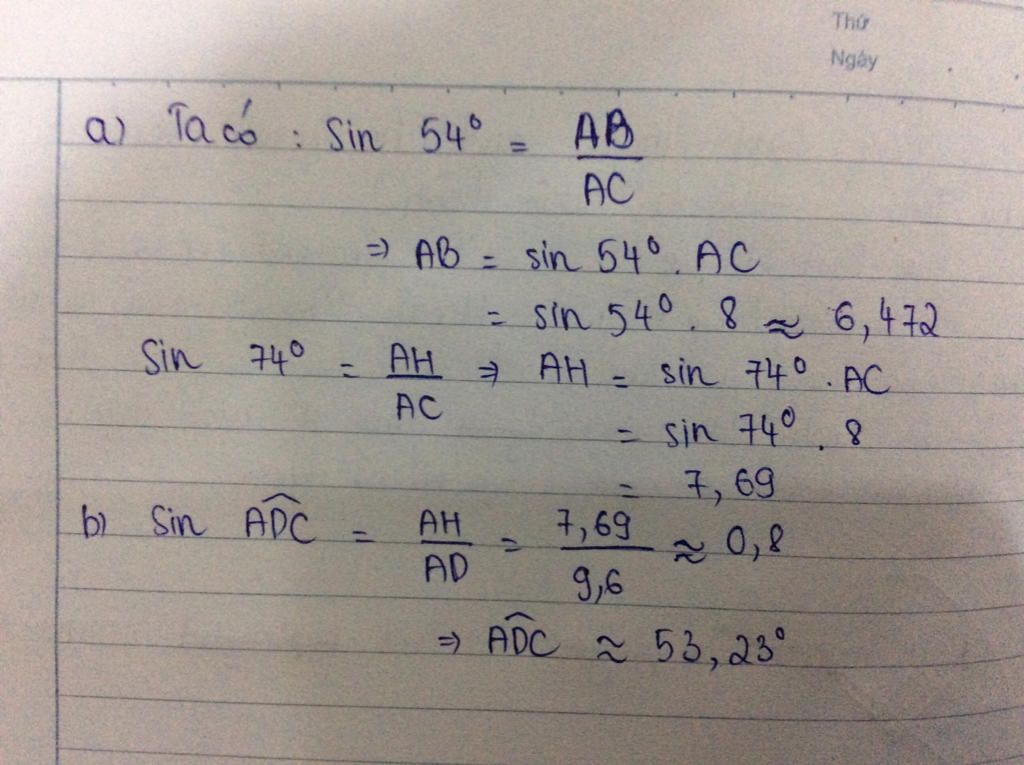 Thứ
Ngày
a) Ta có : Sin 54° = AB/AC
⇒ AB = sin 54° . AC
= sin 54° . 8 ≈ 6,472
Sin 74° = AH/AC ⇒ AH = sin 74° . AC
= sin 74° . 8
= 7,69
b) Sin \widehat{ADC} = AH/AD = 7,69/9,6 ≈ 0,8
⇒ \widehat{ADC} ≈ 53,23°